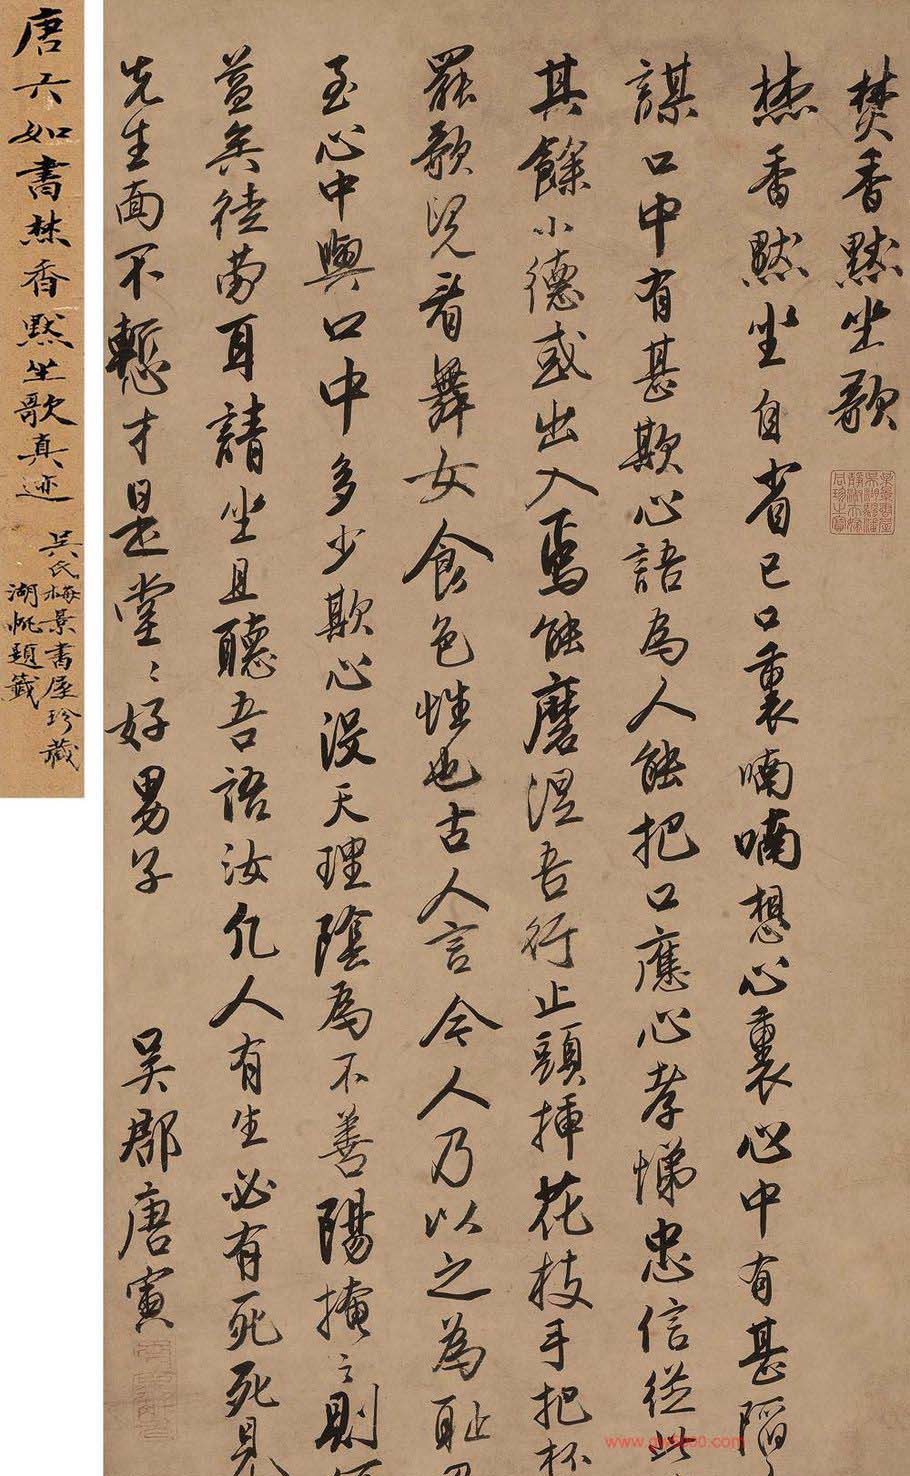 焚香默坐歌
焚香默坐自省己口裏喃喃想心裏心中有甚陷
謀口中有甚欺心語為人能把口應心孝悌忠信從此
其餘小德或出入焉能磨涅吾行止頭插花枝手把杯
罷歌兒看舞女食色性也古人言今人乃以之為恥
至心中與口中多少欺心沒天理陰為不善陽掩之則
益矣徒勞耳請坐且聽吾語汝凡人有生必有死死見
先生面不慚才是堂〻好男子 吳郡唐寅
唐六如書焚香默坐歌真迹
吳氏梅景書屋珍藏
湖帆題籤